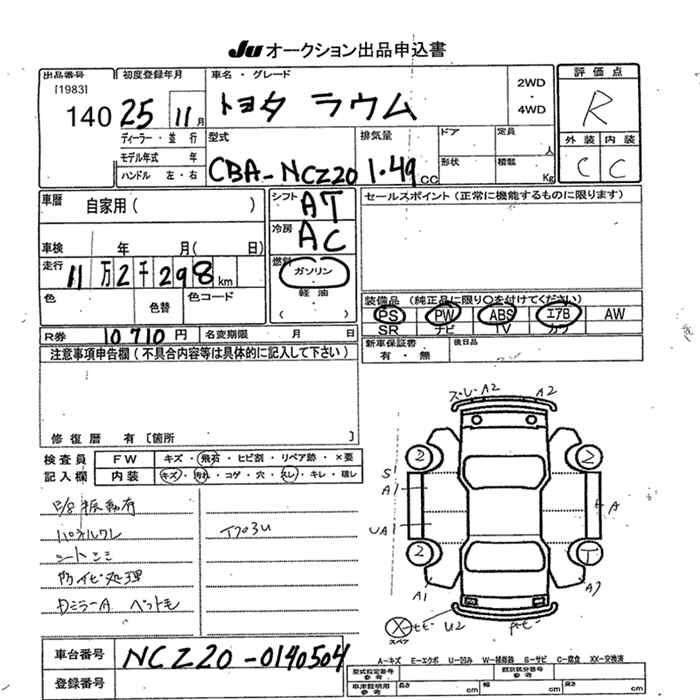 Ju オークション出品申込書
出品番号 初度登録年月 車名・グレード 評価点
[1983]
140 25 11月 トヨタ ラウム 2WD・4WD R
ディーラー・並行 型式 排気量 ドア 定員 人 外装 内装
モデル年式 年
ハンドル 左・右 CBA-NCZ20 1.49 CC 形状 積載 Kg C C
車暦 自家用( ) シフト AT セールスポイント(正常に機能するものに限ります)
冷房 AC
車検 年 月( 日)
走行 11万2千298km 燃料 ガソリン
軽油
( )
色 色替 色コード 装備品(純正品に限り○を付けてください)
PS PW ABS エアB AW
SR ナビ TV カワ
R券 10710円 名変期限 月 日 新車保証書 有・無 後日品
注意事項申告欄(不具合内容等は具体的に記入して下さい)
修復歴 有 [箇所 ]
検査員 FW キズ・飛石・ヒビ割・リペア跡・×要
記入欄 内装 キズ・汚れ・コゲ・穴・スレ・キレ・破レ
ズレ A2 A2
2 2
S
A A
UA
2 T
A1 A2
E/g振動有
パネルワレ
シートシミ
防イビ処理
ペットモ
X ヒビ U2
スペア
車台番号 NCZ20-0140504
登録番号
A-キズ E-エクボ U-凹み W-補修跡 S-サビ C-腐食 XX-交換済
型式指定番号 参考 類別区分番号 参考
車庫証明用 参考 長さ cm 幅 cm 高さ cm